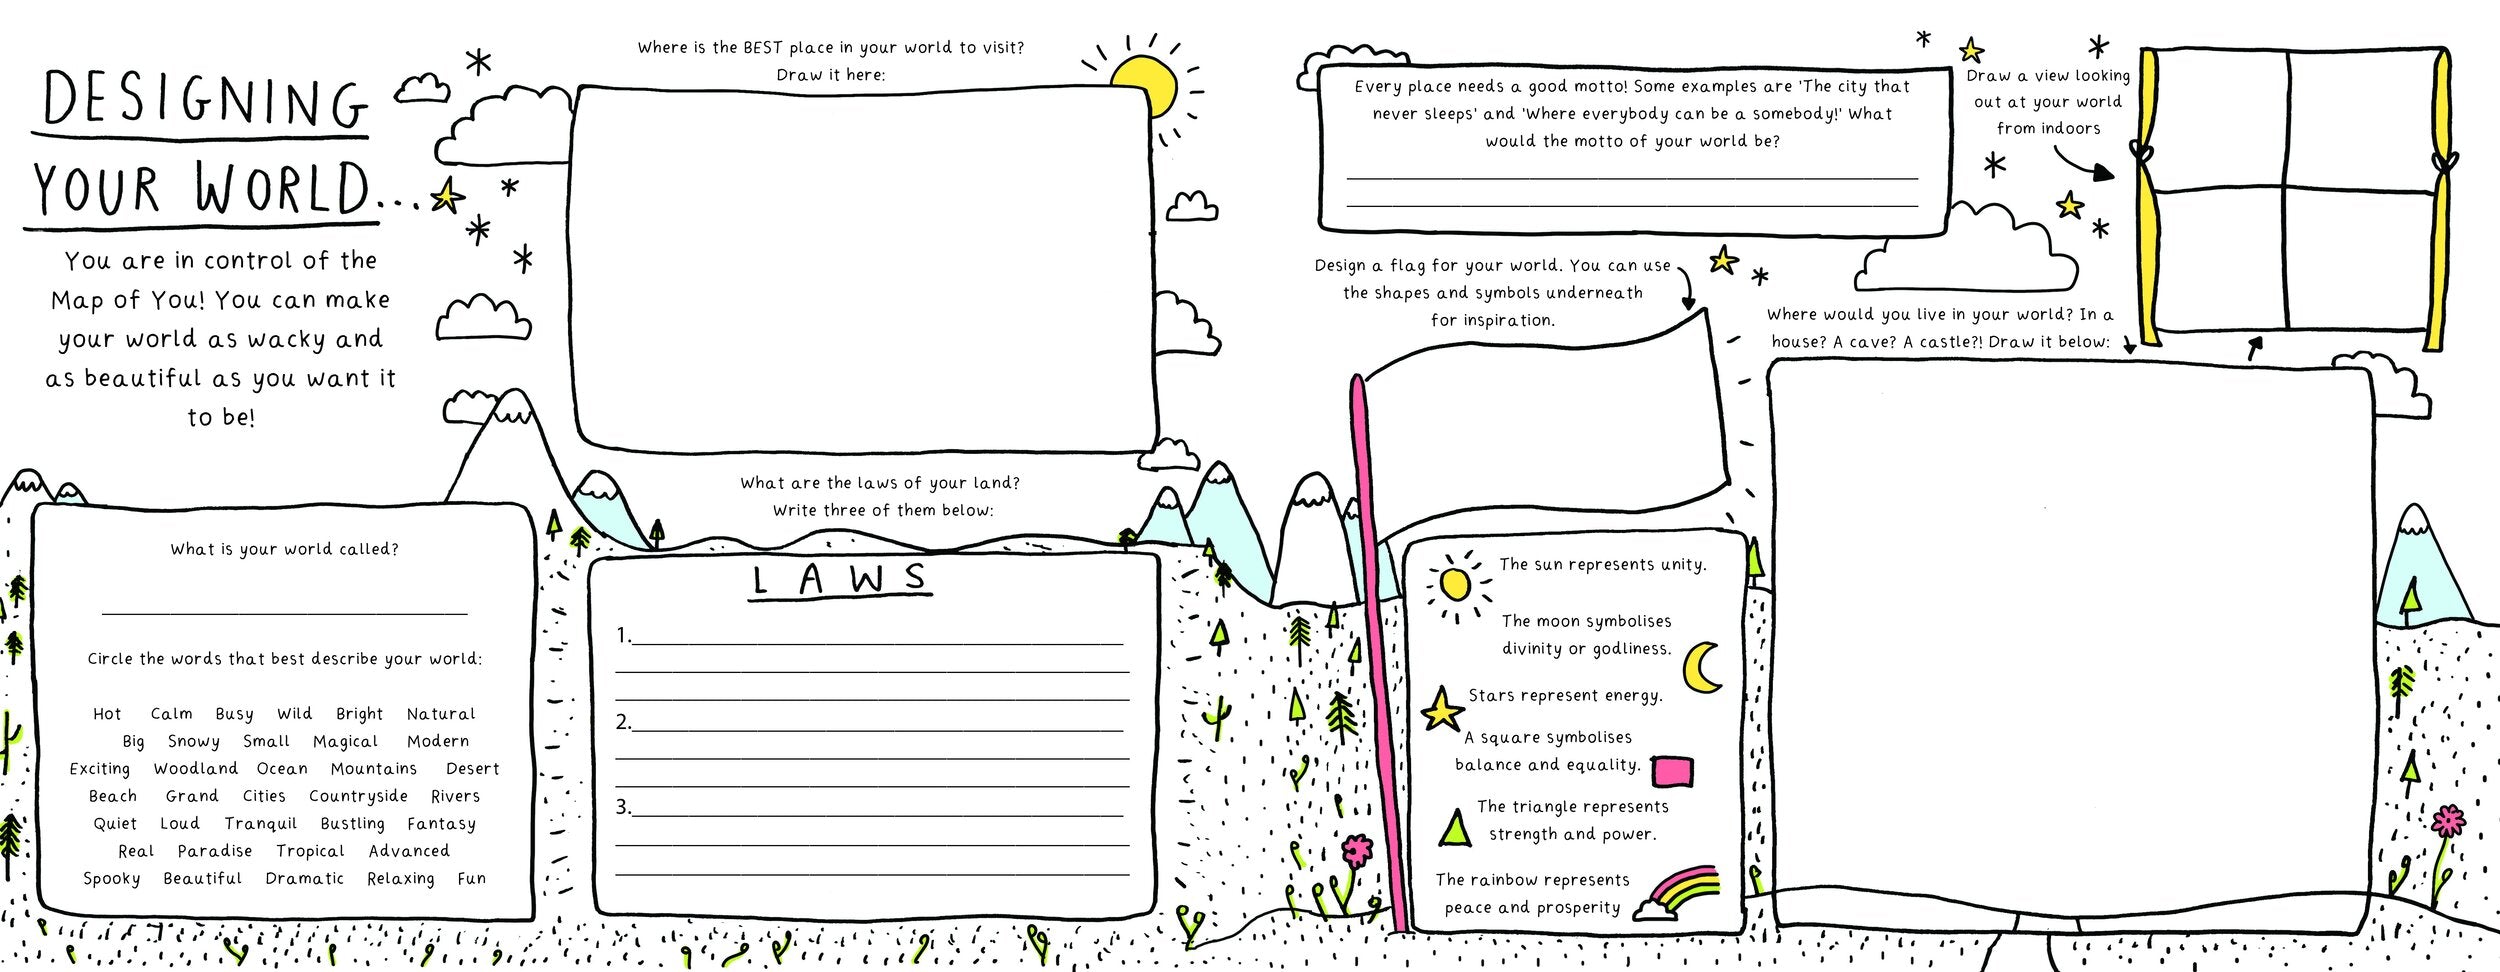 DESIGNING
YOUR WORLD...
You are in control of the
Map of You! You can make
your world as wacky and
as beautiful as you want it
to be!
What is your world called?
Circle the words that best describe your world:
Hot Calm Busy Wild Bright Natural
Big Snowy Small Magical Modern
Exciting Woodland Ocean Mountains Desert
Beach Grand Cities Countryside Rivers
Quiet Loud Tranquil Bustling Fantasy
Real Paradise Tropical Advanced
Spooky Beautiful Dramatic Relaxing Fun
Where is the BEST place in your world to visit?
Draw it here:
What are the laws of your land?
Write three of them below:
LAWS
1.
2.
3.
Every place needs a good motto! Some examples are 'The city that
never sleeps' and 'Where everybody can be a somebody!' What
would the motto of your world be?
Design a flag for your world. You can use
the shapes and symbols underneath
for inspiration.
The sun represents unity.
The moon symbolises
divinity or godliness.
Stars represent energy.
A square symbolises
balance and equality.
The triangle represents
strength and power.
The rainbow represents
peace and prosperity
Draw a view looking
out at your world
from indoors
Where would you live in your world? In a
house? A cave? A castle?! Draw it below: